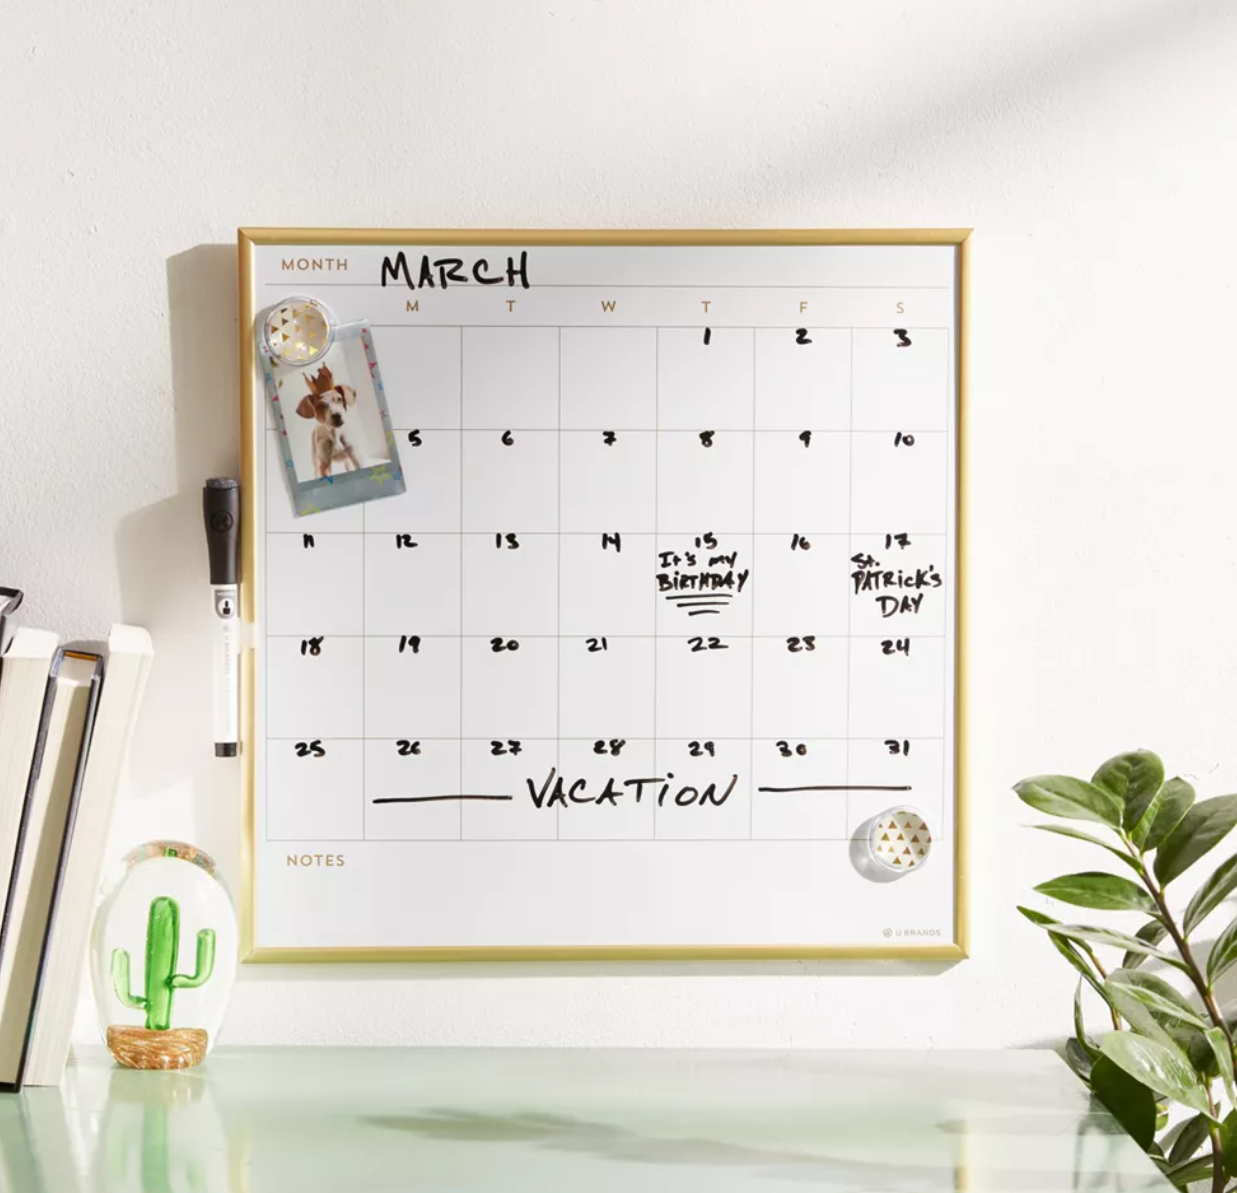 MONTH MARCH
M T W T F S
1 2 3
5 6 7 8 9 10
11 12 13 14 15 16 17
It's my
BIRTHDAY
St.
PATRicK'S
DAY
18 19 20 21 22 23 24
25 26 27 28 29 30 31
VACATiON
NOTES
U BRANDS